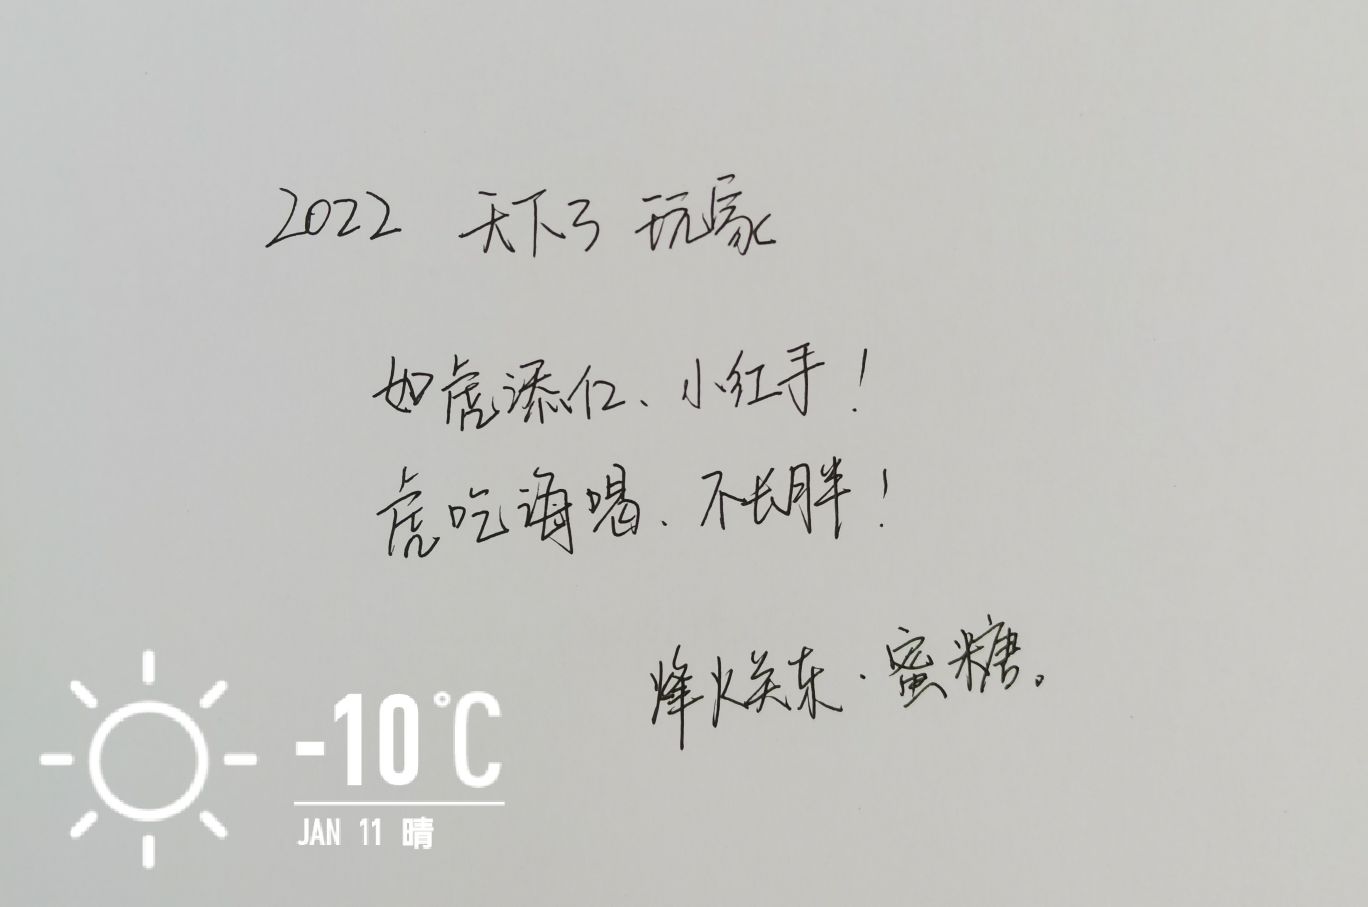 2022 天下3 玩家
如虎添亿、小红手！
虎吃海喝、不长胖！
烽火关东·蜜糖。
-10℃
JAN 11 晴